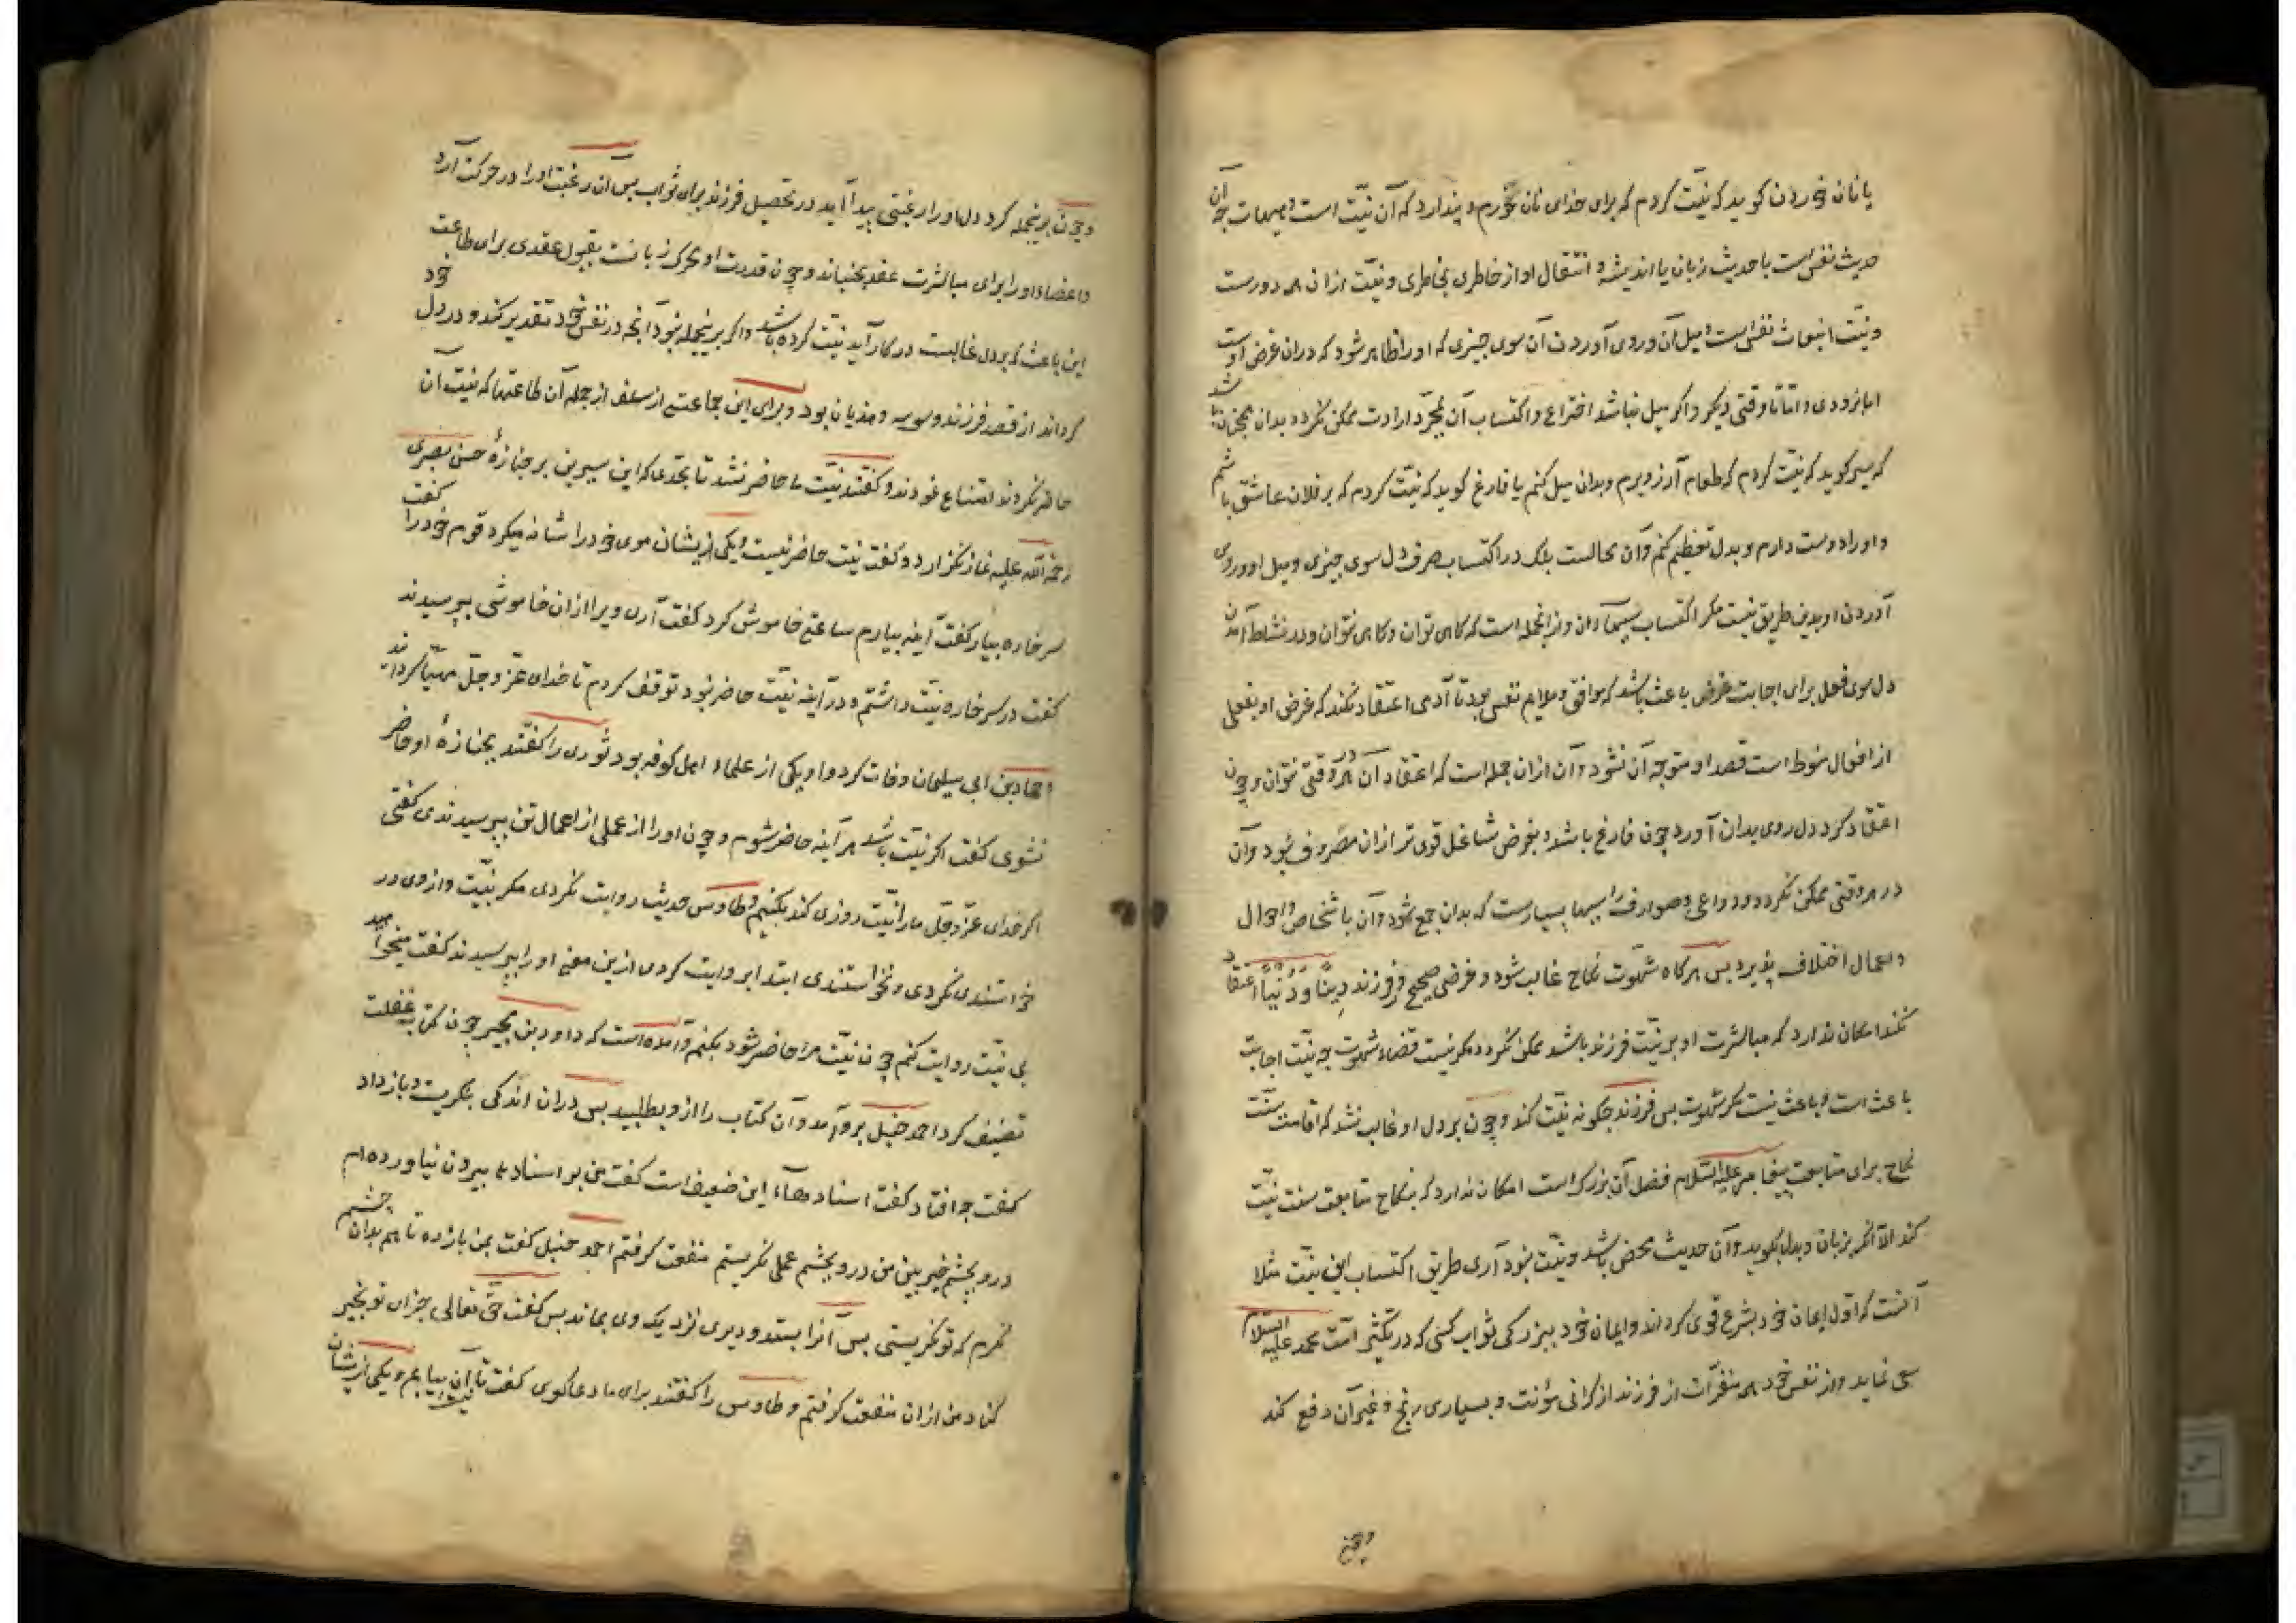 یا نان خوردن کوید که نیّت کردم که برای خدای نان خورم و پندارد که آن نیّت است و هیهات چه آن
حدیث نفس است یا حدیث زبان یا اندیشه و انتقال او از خاطری بخاطری و نیّت ازان همه دورست
و نیّت انبعاث نفس است و میل آن و روی آوردن آن سوی چیزی که او را ظاهر شود که دران غرض اوست
اما بزودی و اما تا وقتی دیکر و اکر میل نباشد اختراع و اکتساب آن بمجرّد ارادت ممکن نکردد بدان همچنان باشد
که سیر کوید که نیّت کردم که طعام آرزو برم و بدان میل کنم یا فارغ کوید که نیّت کردم که بر فلان عاشق باشم
و او را دوست دارم و بدل تعظیم کنم و آن محالست بلک در اکتساب صرف دل سوی چیزی و میل او و روی
آوردن او بدین طریق نیست مکر اکتساب سببهاء آن و از انجمله است که کاهی توان و کاهی نتوان و در نشاط آمدن
دل سوی فعل برای اجابت غرض باعث باشد که موافق و ملایم نفس بود تا آدمی اعتقاد نکند که غرض او بفعلی
از افعال منوط است قصد او متوجه آن نشود و آن ازان جمله است که اعتقاد آن در هر وقتی نتوان و چون
اعتقاد کرد دل روی بدان آورد چون فارغ باشد و بغرض شاغل قوی تر ازان مصروف نبود و آن
در هر وقتی ممکن نکردد و دواعی و صوارف را سببها بسیارست که بدان جمع شود و آن باشخاص و احوال
و اعمال اختلاف پذیرد پس هر کاه شهوت نکاح غالب شود و غرضی صحیح در فرزند دیناً و دنیاً اعتقاد
نکند امکان ندارد که مباشرت او بر نیّت فرزند باشد ممکن نکردد مکر نیست قضاء شهوت چه نیّت اجابت
باعث است و باعث نیست مکر شهوت پس فرزند چکونه نیّت کند و چون بر دل او غالب نشد که اقامت سنّت
نکاح برای متابعت پیغامبر علیه السّلام فضل آن بزرک است امکان ندارد که بنکاح متابعت سنت نیّت
کند الا آنکه بزبان و بدل بکوید و آن حدیث محض باشد و نیّت نبود آری طریق اکتساب این نیّت مثلا
آنست که اوّل ایمان خود بشرع قوی کرداند و ایمان خود ببزرکی ثواب کسی که در تکثیر امّت محمد علیه السّلام
سعی نماید و از نفس خود همه منفّرات از فرزند از کرانی مؤنت و بسیاری رنج و غیر آن دفع کند
و چون
و چون برینجمله کرد دل او را رغبتی پیدا آید در تحصیل فرزند برای ثواب پس آن رغبت او را در حرکت آرد
و اعضاء او را برای مباشرت عقد بجنباند و چون قدرت او محرک زبانست بقبول عقدی برای طاعت خود
این باعث که بر دل غالبست در کار آید نیّت کرده باشد و اکر برینجمله نبود آنچه در نفس خود تقدیر کند و در دل
کرداند از قصد فرزند وسوسه و هذیان بود و برای این جماعتی از سلف از جمله آن طاعتها که نیّت آن
حاضر نکردند امتناع نمودند و کفتند نیّت ما حاضر نشد تا بحدّی که ابن سیرین بر جنازهٔ حسن بصری
رحمة اللّه علیه نماز نکزارد و کفت نیّت حاضر نیست و یکی ازیشان موی خود را شانه میکرد قوم خود را کفت
سرخاره بیار کفت آینه بیارم ساعتی خاموش کرد کفت آری ویرا ازان خاموشی بپرسیدند
کفت در سرخاره نیّت داشتم و در آینه نیّت حاضر نبود توقف کردم تا خدای عزّ و جلّ مهیّا کردانید
و حماد بن ابی سلیمان وفات کرد و او یکی از علماء اهل کوفه بود ثوری را کفتند بجنازهٔ او حاضر
نشوی کفت اکر نیّت باشد هر آینه حاضر شوم و چون او را از عملی از اعمال تن بپرسیدندی کفتی
اکر خدای عزّ و جلّ ما را نیّت روزی کند بکنیم و طاوس حدیث روایت نکردی مکر بنیّت و ازوی در
خواستندی نکردی و نخواستندی ابتدا بروایت کردی ازین معنی او را بپرسیدند کفت میخواهید
بی نیّت روایت کنم چون نیّت مرا حاضر شود بکنم و آمده است که داود بن محبر چون کتاب عقل
تصنیف کرد احمد حنبل برو آمد و آن کتاب را ازو بطلبید پس دران اندکی بنکریست و باز داد
کفت چه افتاد کفت اسناد هاء این ضعیف است کفت من بر اسنادها بیرون نیاورده ام
درو بچشم خبر ببین من درو بچشم عمل نکریستم منفعت کرفتم احمد حنبل کفت بمن بازده تا هم بدان چشم
نکرم که تو نکریستی پس آنرا بستد و دیری نزدیک وی بماند پس کفت حق تعالی جزای تو بخیر
کناد من ازان منفعت کرفتم و طاوس را کفتند برای ما دعا کوی کفت تا آن نیّت بیابم و یکی ازیشان